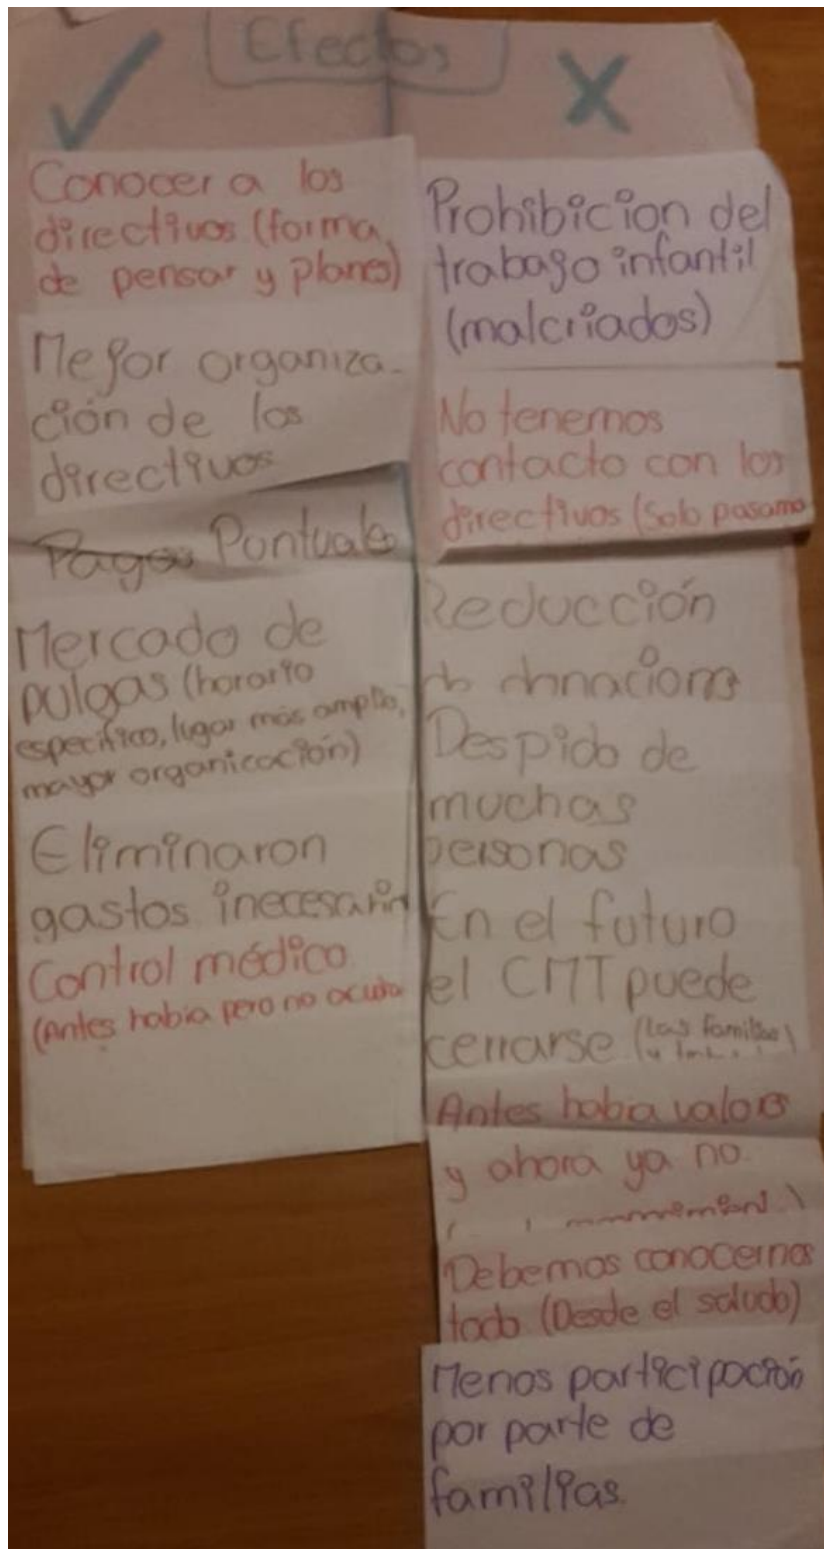 Efectos
Conocer a los
directivos (forma
de pensar y planes)
Mejor organiza-
ción de los
directivos
Pagos Puntuales
Mercado de
pulgas (horario
especifico, lugar más amplio,
mayor organicación)
Eliminaron
gastos inecesario
Control médico
(Antes habia pero no
Prohibicion del
trabajo infantil
(malcriados)
No tenemos
contacto con los
directivos (Solo pasamo
Reducción
Despido de
muchas
personas
En el futuro
el CMT puede
cerrarse (Las familias
Antes habia valores
y ahora ya no
Debemos conocernos
todo (Desde el saludo)
Menos participación
por parte de
familias.